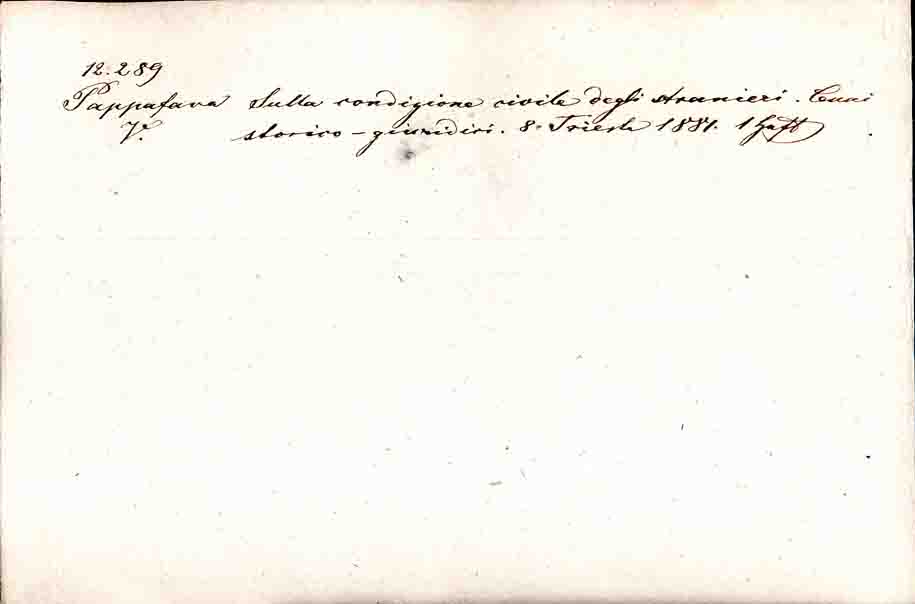 12.289
Pappafava Sulla condizione civile degli stranieri. Cenni
V. storico-giuridici. 8° Trieste 1881. 1 Heft